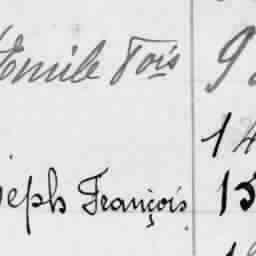 Emile Fois 9
14
eph François 15